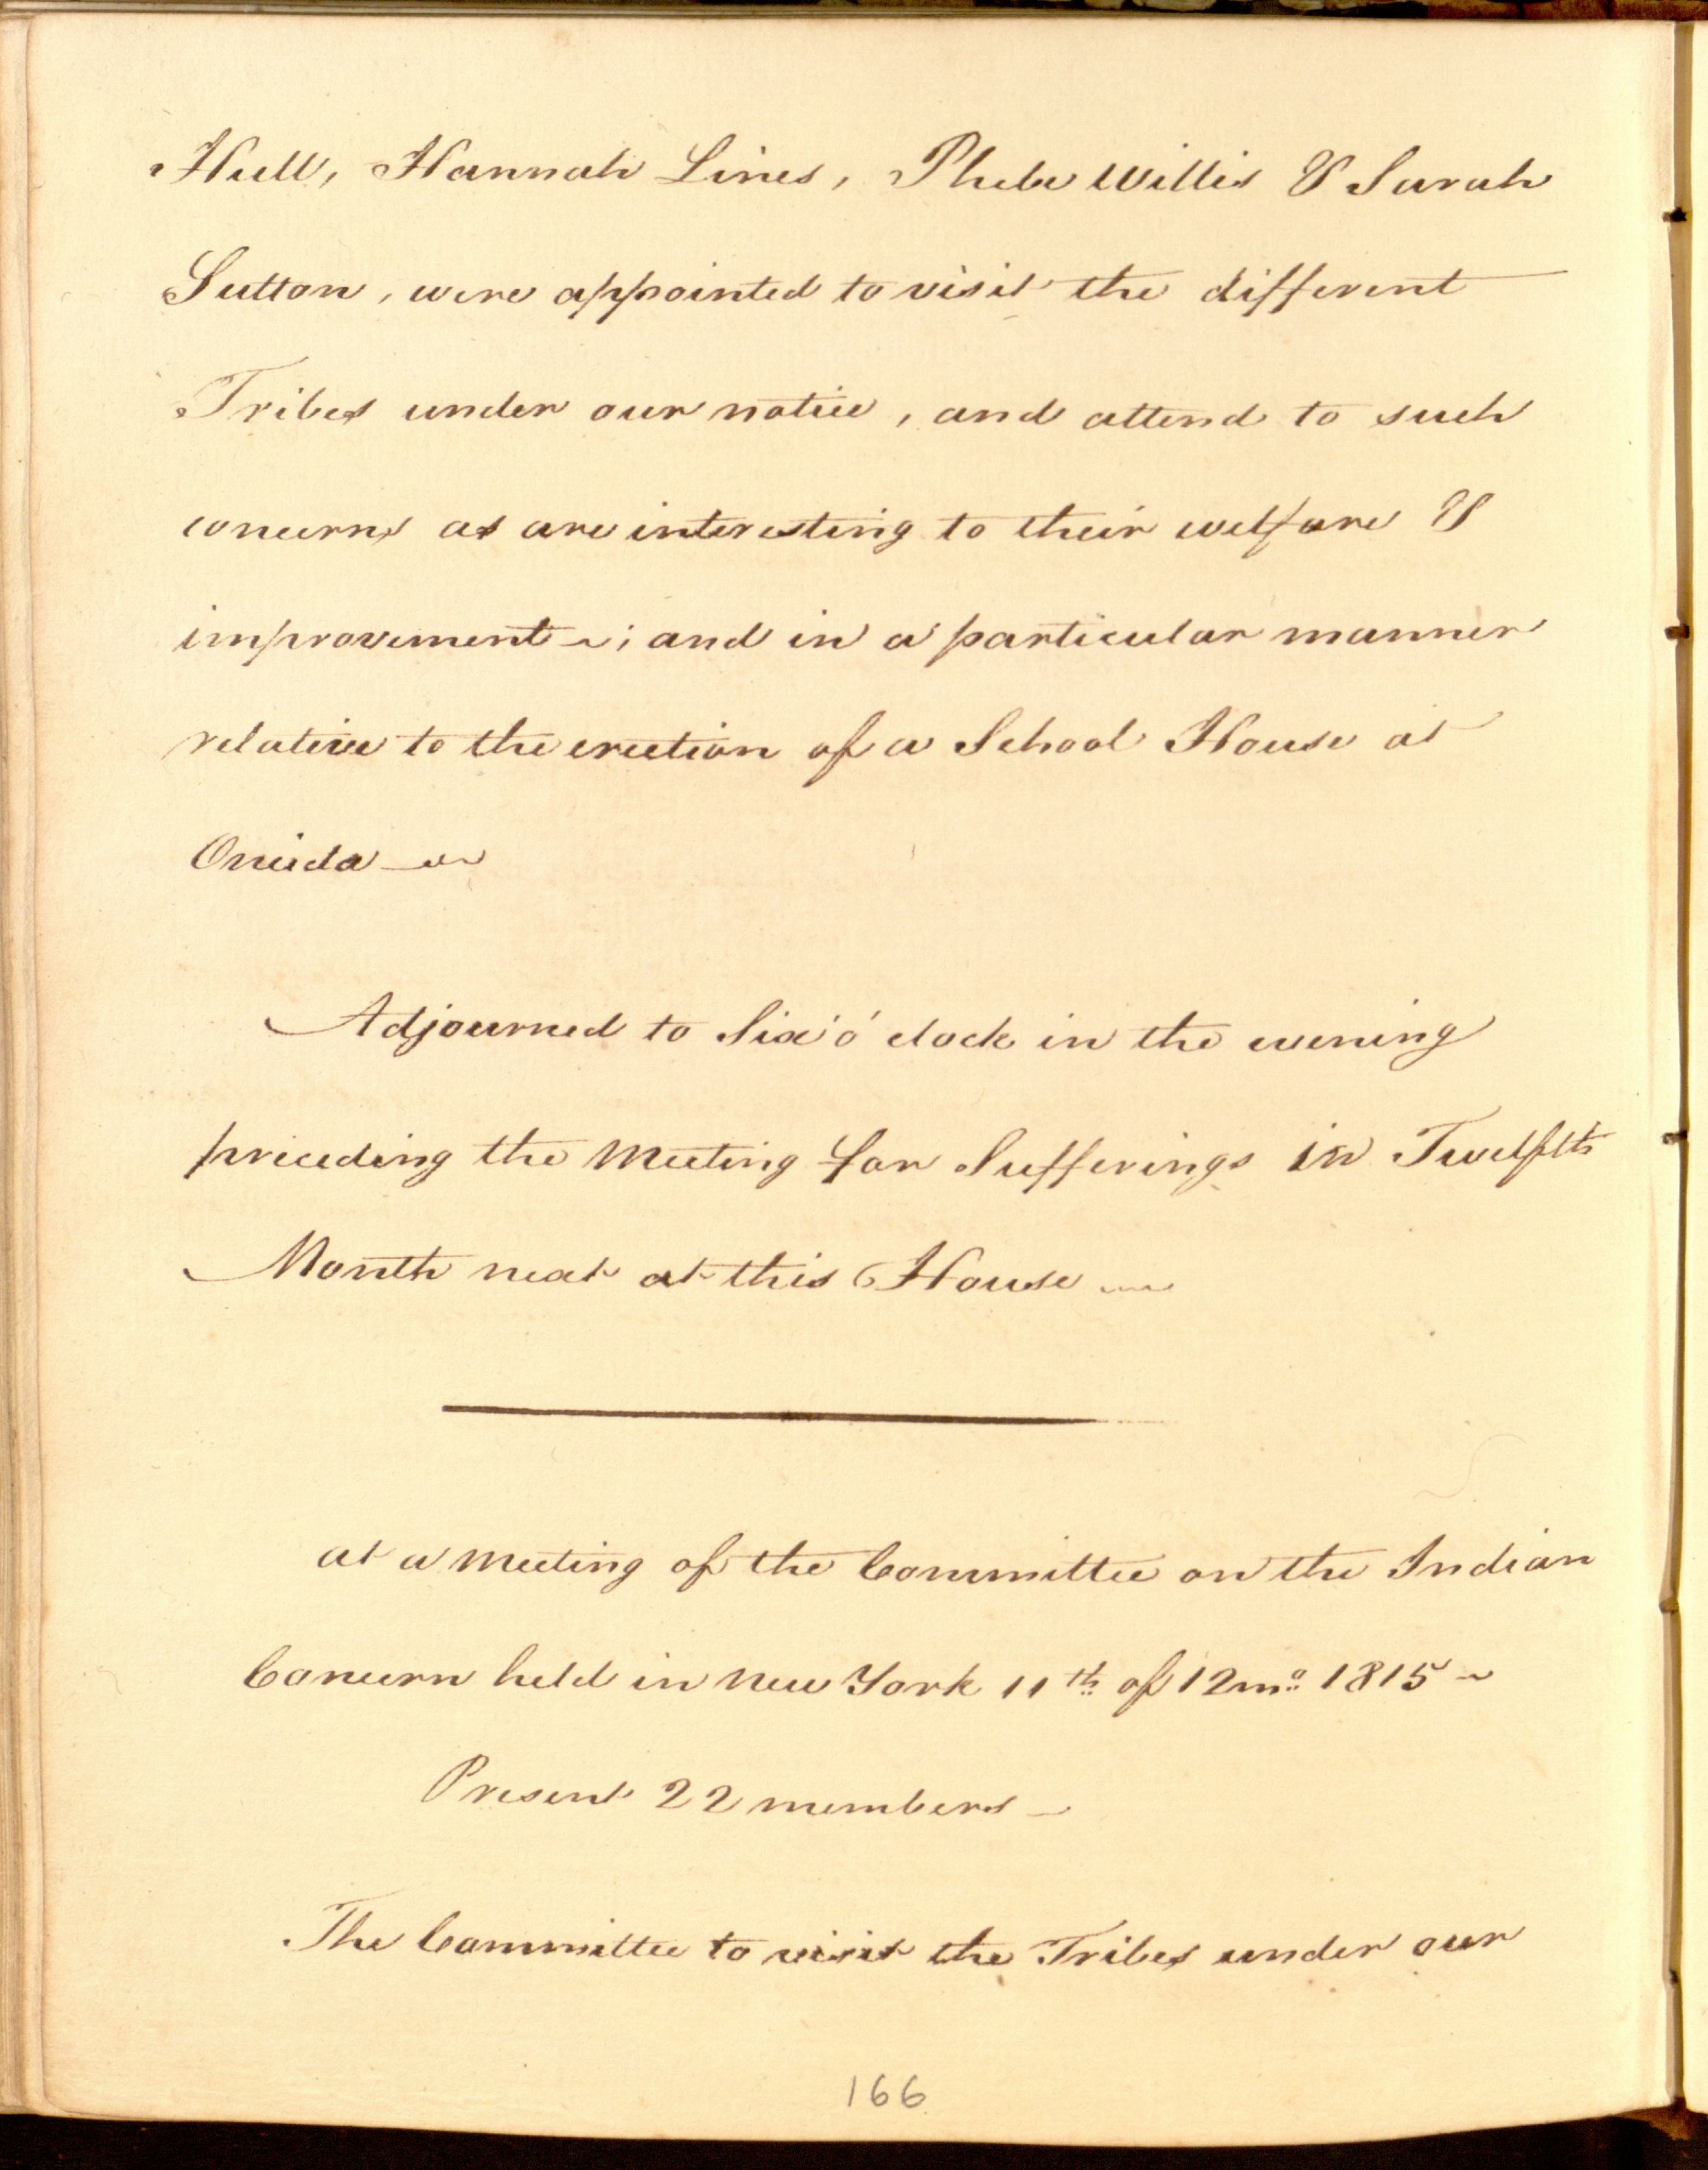 Hull, Hannah Lines, Phebe Willis & Sarah
Sutton, were appointed to visit the different
Tribes under our notice, and attend to such
concerns as are interesting to their welfare &
improvement; and in a particular manner
relative to the erection of a School House at
Oneida
Adjourned to Six o'clock in the evening
preceding the Meeting for Sufferings in Twelfth
Month next at this House
at a Meeting of the Committee on the Indian
Concern held in New York 11th of 12mo 1815
Present 22 members
The Committee to visit the Tribes under our
166